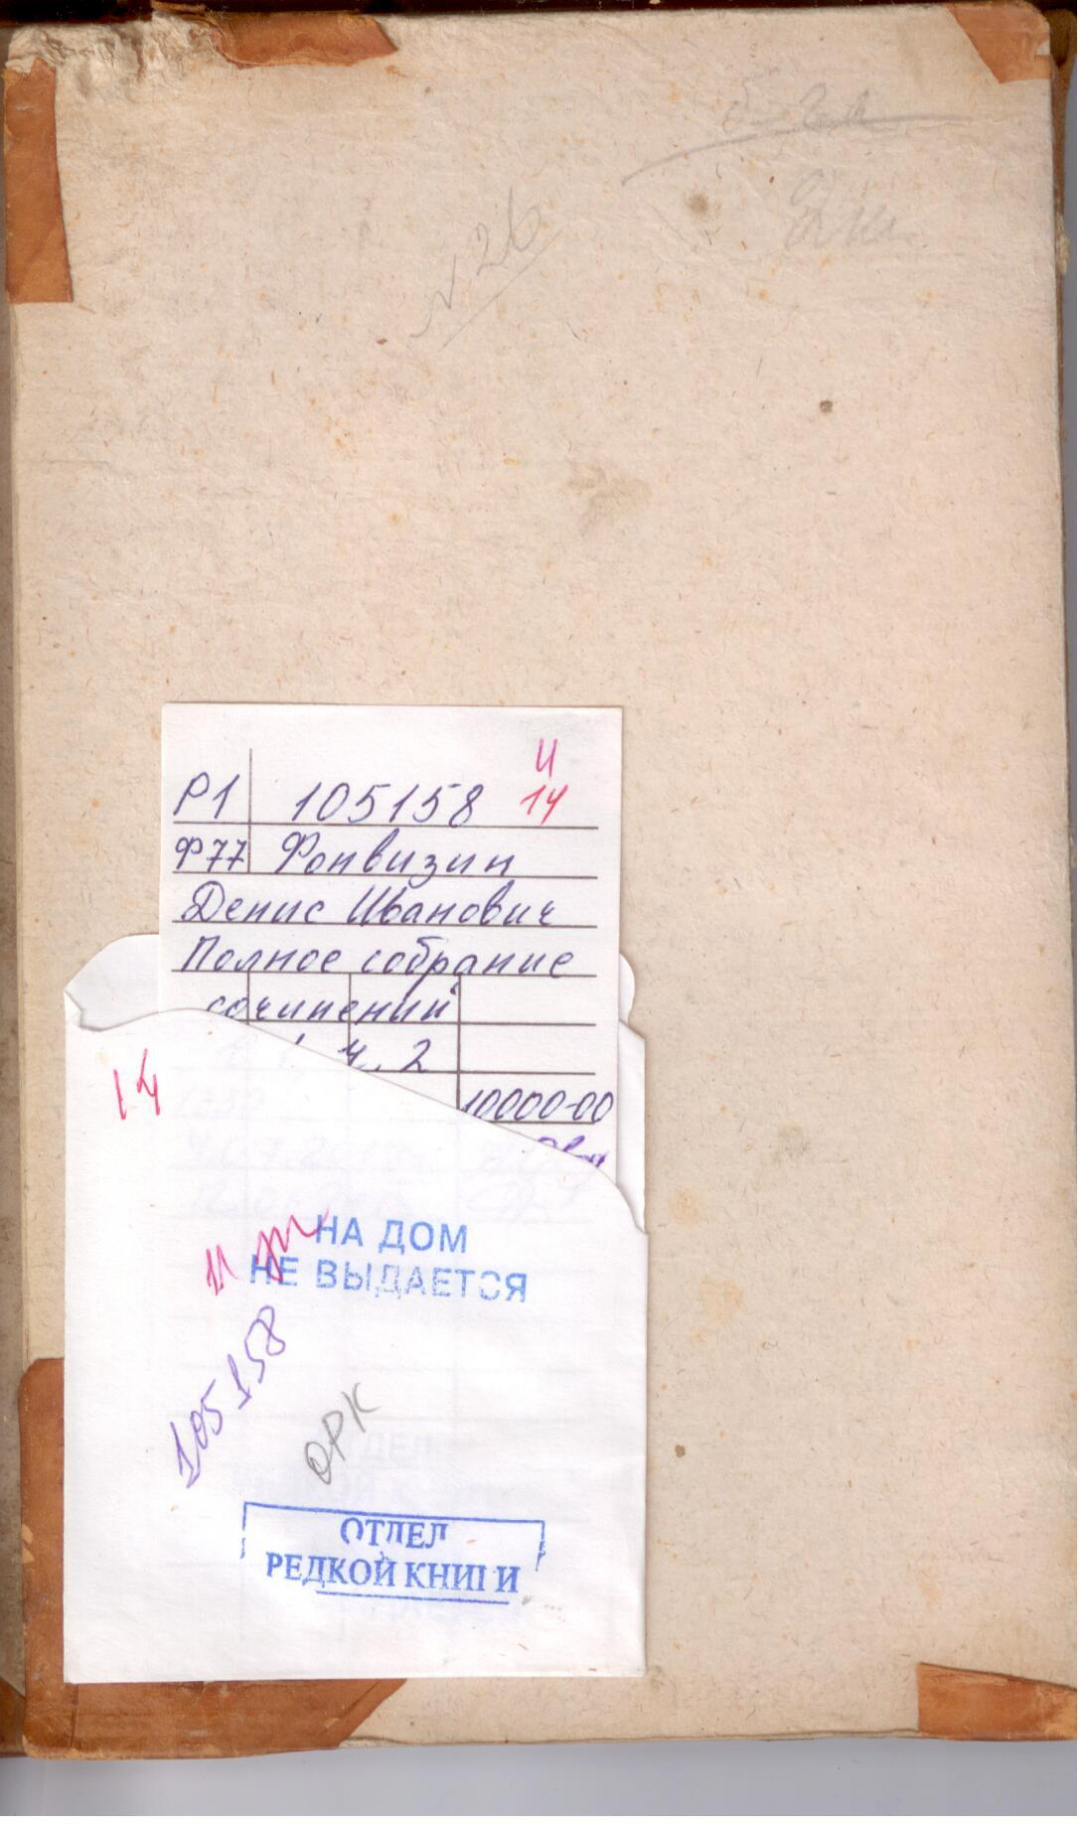 № 26
И
Р1 105158 14
Ф77 Фонвизин
Денис Иванович
Полное собрание
сочинений
ч. 2
10000-00
14
НА ДОМ
НЕ ВЫДАЕТСЯ
105158
ОРК
ОТДЕЛ
РЕДКОЙ КНИГИ